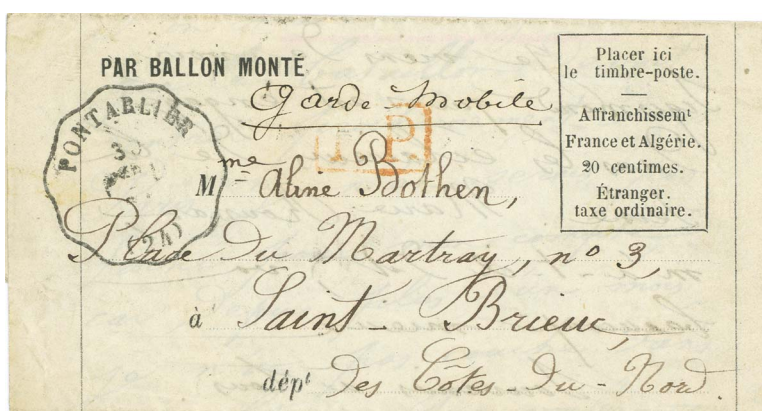 PAR BALLON MONTÉ
Garde-Mobile
Placer ici
le timbre-poste.
Affranchissemt
France et Algérie.
20 centimes.
Étranger.
taxe ordinaire.
PONTARLIER
(24)
P P
Mme Aline Bothen,
Place du Martray, no 3,
à Saint-Brieuc,
dépt des Côtes-du-Nord.